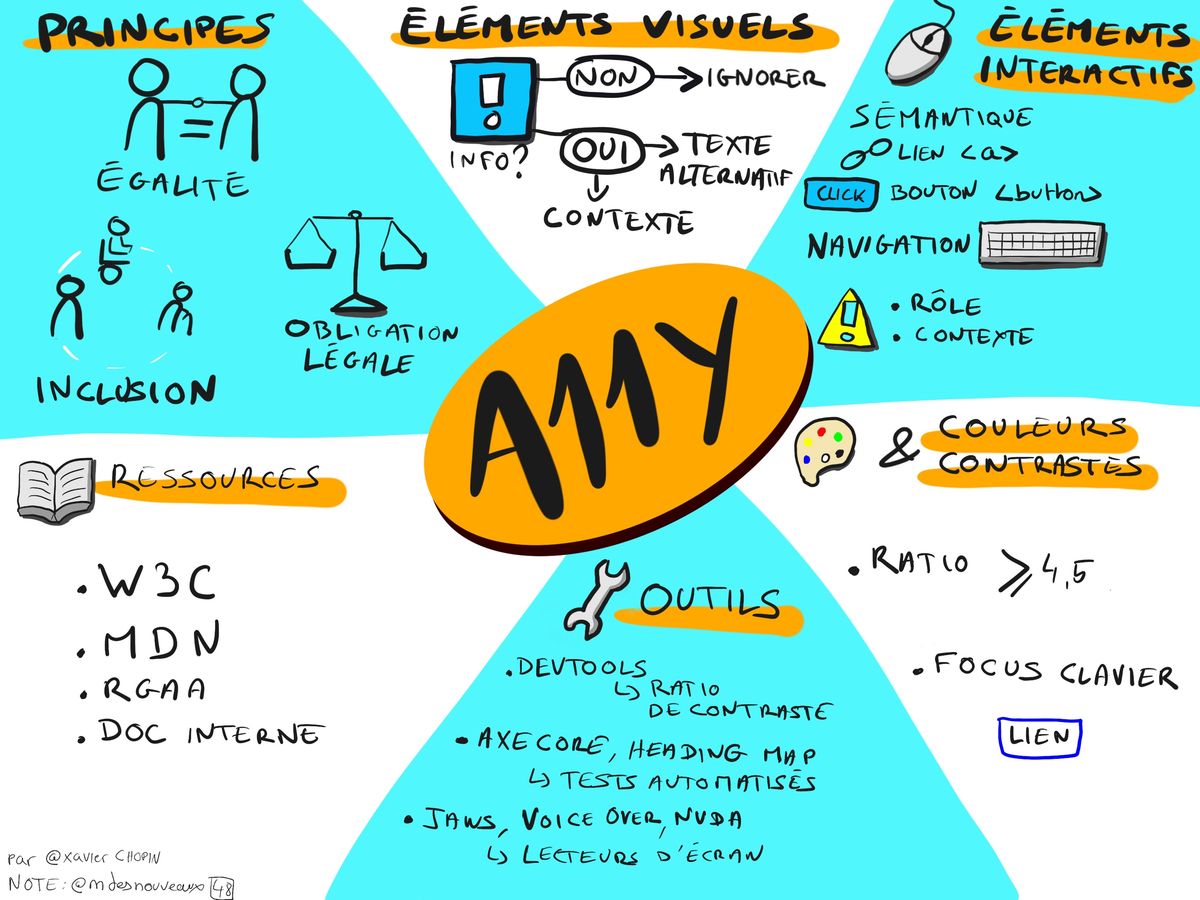 PRINCIPES
ÉGALITÉ
INCLUSION
OBLIGATION
LÉGALE
ÉLÉMENTS VISUELS
INFO?
NON
IGNORER
OUI
TEXTE
ALTERNATIF
CONTEXTE
ÉLÉMENTS
INTERACTIFS
SÉMANTIQUE
LIEN <a>
CLICK BOUTON <button>
NAVIGATION
• RÔLE
• CONTEXTE
A11Y
RESSOURCES
• W3C
• MDN
• RGAA
• DOC INTERNE
OUTILS
• DEVTOOLS
↳ RATIO
DE CONTRASTE
• AXECORE, HEADING MAP
↳ TESTS AUTOMATISÉS
• JAWS, VOICE OVER, NVDA
↳ LECTEURS D'ÉCRAN
& COULEURS
CONTRASTES
• RATIO ⩾ 4,5
• FOCUS CLAVIER
LIEN
par @XAVIER CHOPIN
NOTE: @mdesnouveaux 48